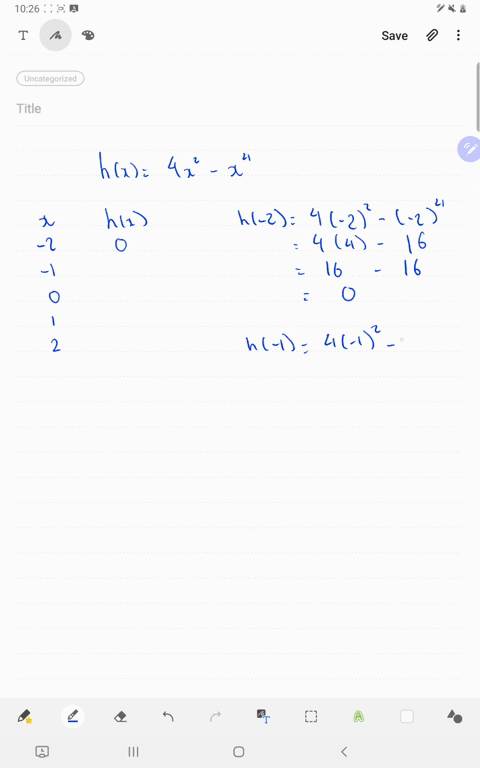 10:26
T
Save
Uncategorized
Title
h(x) = 4x² - x⁴
x h(x) h(-2) = 4(-2)² - (-2)⁴
-2 0 = 4(4) - 16
-1 = 16 - 16
0 = 0
1
2 h(-1) = 4(-1)² -
T
A